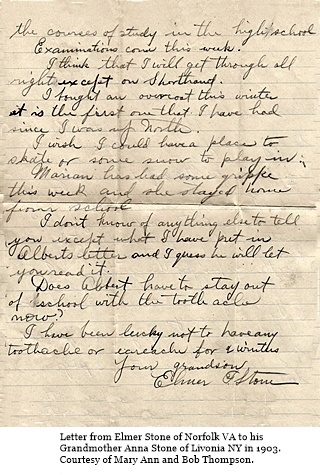 the courses of study in the high school
Examinations come this week.
I think that I will get through all
right except on Shorthand.
I bought an overcoat this winter
it is the first one that I have had
since I was up North.
I wish I could have a place to
skate or some snow to play in.
Marian has had some grippe
this week and she stayed home
from school
I don't know of anything else to tell
you except what I have put in
Alberts letter and I guess he will let
you read it.
Does Albert have to stay out
of school with the tooth ache
now?
I have been lucky not to have any
toothache or earache for 2 winters
Your grandson
Elmer F Stone
Letter from Elmer Stone of Norfolk VA to his
Grandmother Anna Stone of Livonia NY in 1903.
Courtesy of Mary Ann and Bob Thompson.